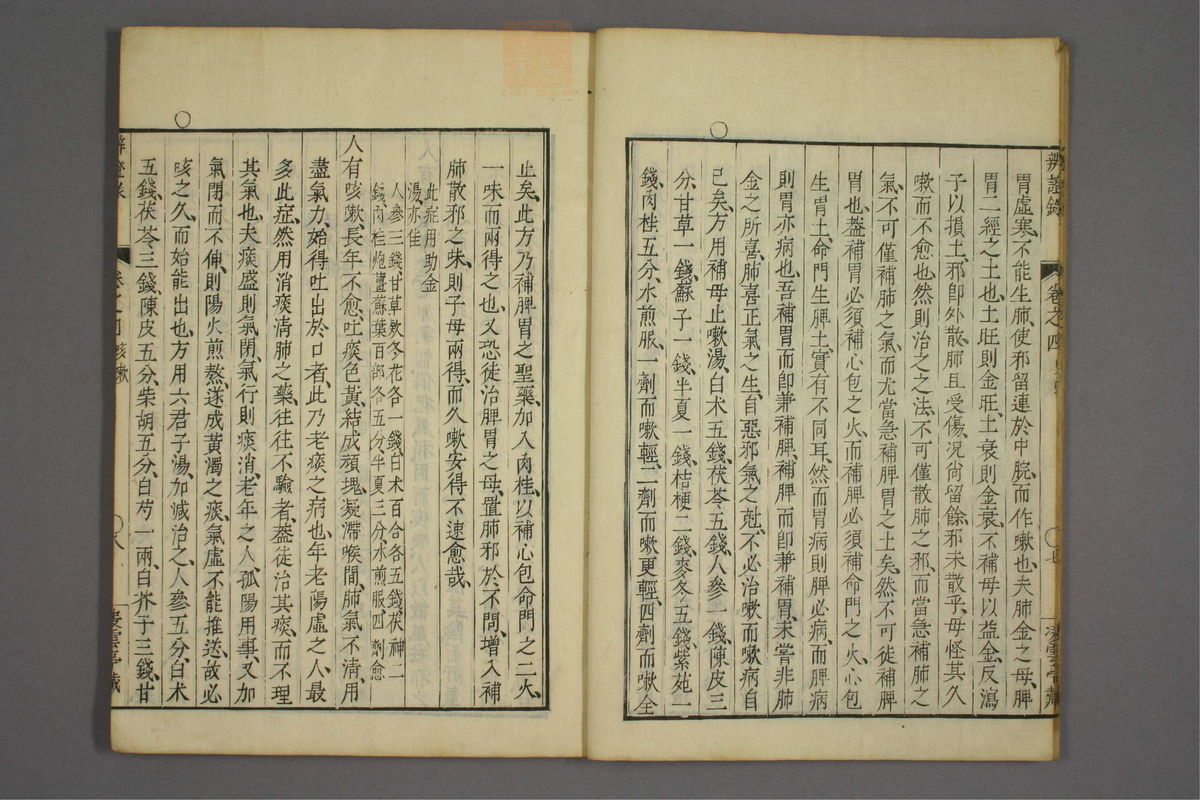 辨證錄 卷之四 七
胃虛寒、不能生肺、使邪留連於中脘、而作嗽也、夫肺金之母、脾
胃二經之土也、土旺則金旺、土衰則金衰、不補母以益金、反瀉
子以損土、邪卽外散、肺且受傷、況尚留餘邪未散乎、毋怪其久
嗽而不愈也、然則治之之法、不可僅散肺之邪、而當急補肺之
氣、不可僅補肺之氣、而尤當急補脾胃之土矣、然不可徒補脾
胃也、蓋補胃必須補心包之火、而補脾必須補命門之火、心包
生胃土、命門生脾土、實有不同耳、然而胃病則脾必病、而脾病
則胃亦病也、吾補胃而卽兼補脾、補脾而卽兼補胃、未嘗非肺
金之所喜、肺喜正氣之生、自惡邪氣之尅、不必治嗽而嗽病自
已矣、方用補母止嗽湯、白术五錢、茯苓五錢、人參一錢、陳皮三
分、甘草一錢、蘇子一錢、半夏一錢、桔梗二錢、麥冬五錢、紫苑一
錢、肉桂五分、水煎服、一劑而嗽輕、二劑而嗽更輕、四劑而嗽全
止矣、此方乃補脾胃之聖藥、加入肉桂以補心包命門之二火、
一味而兩得之也、又恐徒治脾胃之母、置肺邪於不問、增入補
肺散邪之味、則子母兩得、而久嗽安得不速愈哉、
此症用助金
湯亦佳
人參三錢甘草款冬花各一錢白术百合各五錢茯神二
錢肉桂炮薑蘇葉百部各五分、半夏三分水煎服、四劑愈
人有咳嗽、長年不愈、吐痰色黃、結成頑塊、凝滯喉間、肺氣不清、用
盡氣力、始得吐出於口者、此乃老痰之病也、年老陽虛之人、最
多此症、然用消痰清肺之藥、往往不驗者、蓋徒治其痰、而不理
其氣也、夫痰盛則氣閉、氣行則痰消、老年之人、孤陽用事、又加
氣閉而不伸、則陽火煎熬、遂成黃濁之痰、氣虛不能推送、故必
咳之久、而始能出也、方用六君子湯、加減治之、人參五分、白术
五錢、茯苓三錢、陳皮五分、柴胡五分、白芍一兩、白芥子三錢、甘
卷之四 咳嗽 八